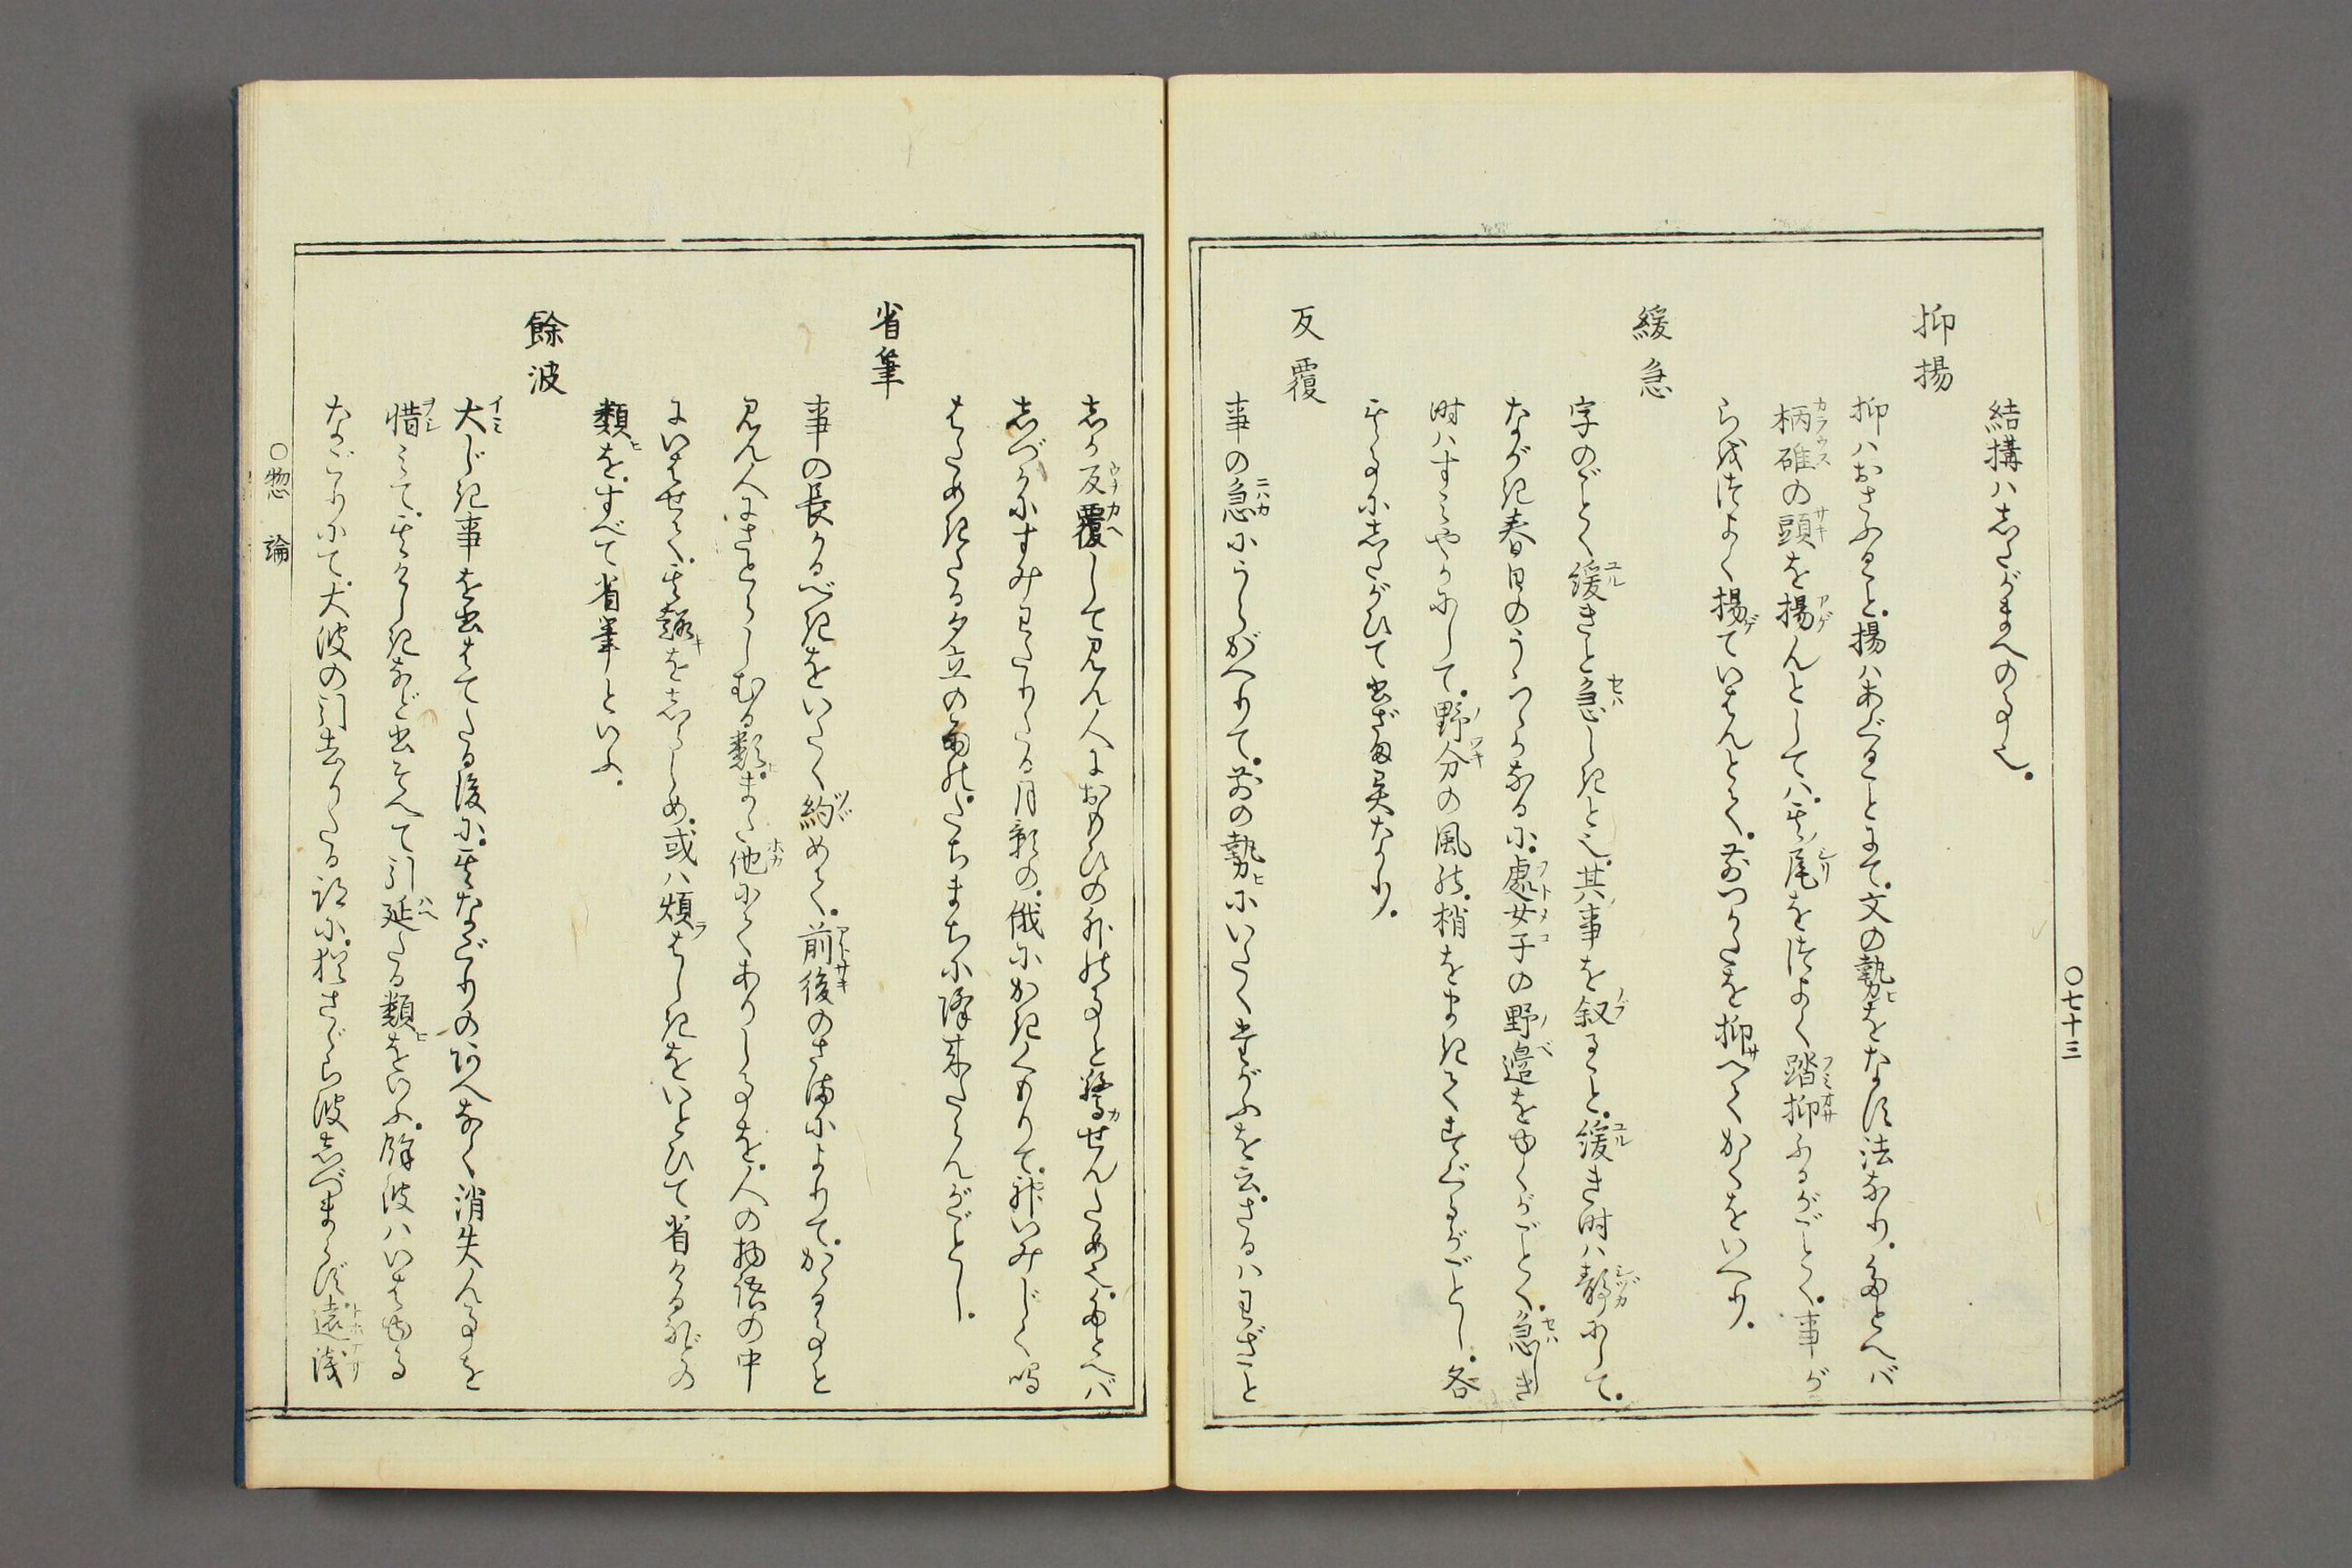 〇七十三
結構ハしたがまへの事也。
抑揚
抑ハおさふること。揚ハあぐることにて。文の勢をなす法なり。たとへバ
柄碓の頭を揚んとしてハ。其尾をつよく踏抑ふるがごとく。事が
らをつよく揚ていはんとて。前つかたを抑へてかくをいへり。
緩急
字のごとく緩きと急しきと也。其事を叙ること。緩き時ハ静にして。
ながき春日のうらゝかなるに。處女子の野邉をゆくがごとく。急しき
時ハすみやかにして。野分の風の。梢をまきてすぐるがごとし。各
其事にしたがひて書ざま異なり。
反覆
事の急にうらがへりて。前の勢にいたくたがふを云。さるハわざと
しか反覆して見ん人におもひの外の事と驚かせんため也。たとへバ
しづかにすみわたりたる月影の。俄にかきくもりて。神いみじく鳴
はためきたる夕立の雨の。たちまちに降来たらんがごとし。
省筆
事の長かるべきをいたく約めて。前後のさまによりて。かゝる事と
見ん人にさとらしむる類。また他にてありし事を。人の物語の中
にいはせて。其趣をしらしめ。或ハ煩はしきをいとひて省けるなどの
類を。すべて省筆といふ。
餘波
大じき事を書はてたる後に。其なごりのゆくへなく消失ん事を
惜みて。其けしきなど書そへて引延たる類をいふ。餘波ハいはゆる
なごりにて。大波の引去りたる跡に。猶さゞら波しづまらず。遠浅
〇惣論